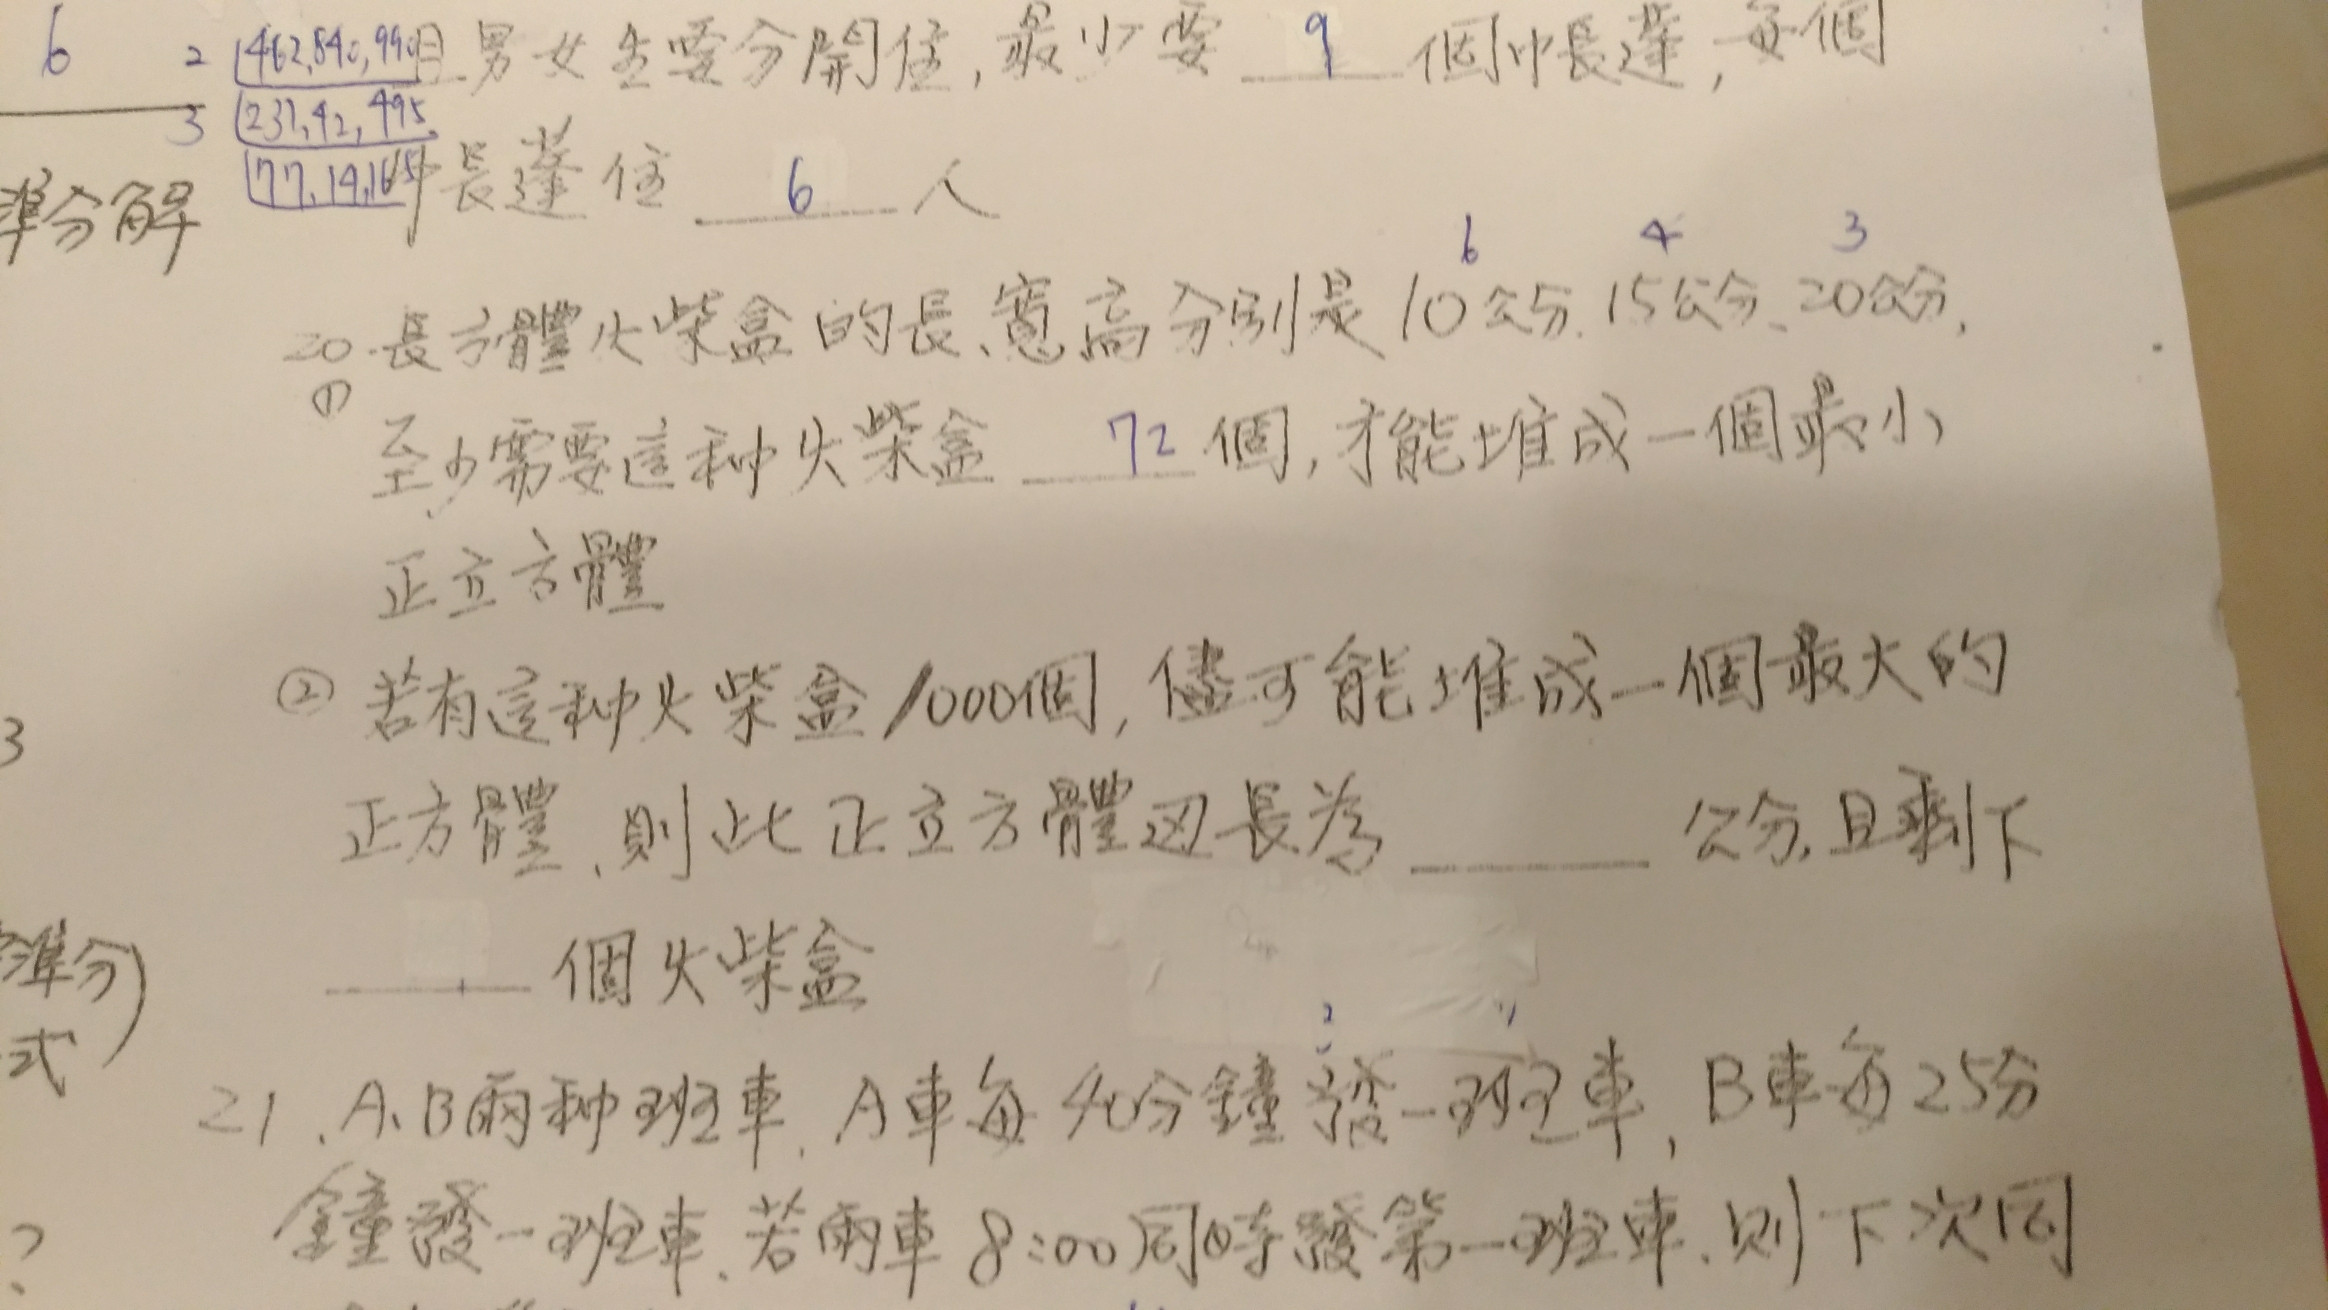 6
2 462,840,990 且男女生要分開住,最少要 9 個帳蓬,每個
3 231,42,495
77,14,165 帳蓬住 6 人
準分解
6 4 3
20.長方體火柴盒的長、寬高分別是10公分.15公分、20公分,
① 至少需要這种火柴盒 72 個,才能堆成一個最小
正立方體
② 若有這种火柴盒1000個,儘可能堆成一個最大的
3
正方體,則此正立方體边長為 公分,且剩下
準分)
個火柴盒
式
21.A、B兩种班車,A車每40分鐘發一班車,B車每25分
鐘發一班車,若兩車8:00同時發第一班車,則下次同
?